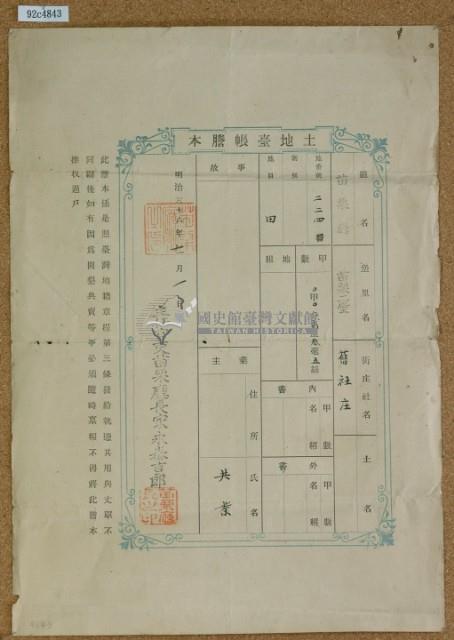 92c4843
土地臺帳謄本
廳名
苗栗
堡里名
苗栗堡
街庄社名
舊社庄
土名
地番號
二二四番
地目
田
甲數
地租
內甲數
審名稱
外甲數
審名稱
事故
業主
住所
氏名
共業
明治三十六年十一月一日
苗栗廳長家永泰吉郎
此謄本係是照臺灣地籍章程第三條發給就連其用與丈單不
同嗣後如有因爲開墾典賣等事必須隨時稟報不得將此謄本
推收過戶
國史館臺灣文獻館
TAIWAN HISTORICA